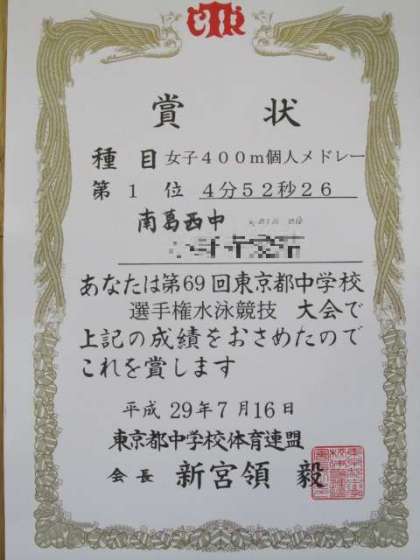 賞状
種目 女子400m個人メドレー
第1位 4分52秒26
南葛西中
あなたは第69回東京都中学校
選手権水泳競技 大会で
上記の成績をおさめたので
これを賞します
平成29年7月16日
東京都中学校体育連盟
会長 新宮領 毅